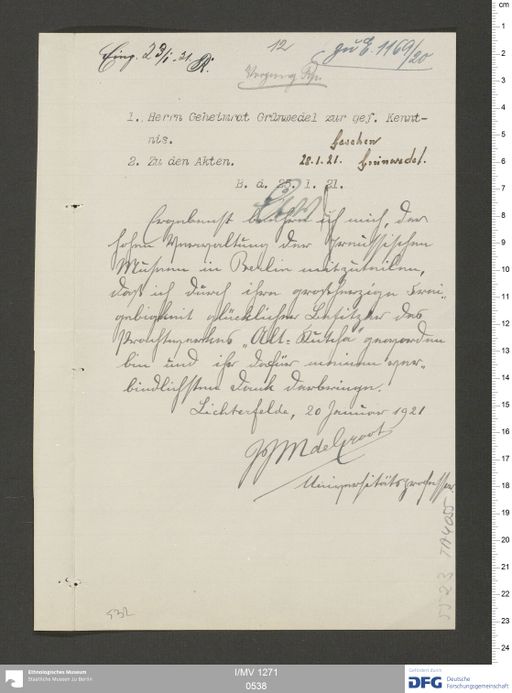 Eing. 23/1.21 R.
12
zu E. 1169/20
Vorgang
1. Herrn Geheimrat Grünwedel zur gef. Kennt-
nis.
Gesehen
2. Zu den Akten.
28.1.21. Grünwedel.
B. d. 25. 1. 21.
Ergebenst beehre ich mich, der
hohen Verwaltung der Preussischen
Museen in Berlin mitzuteilen,
daß ich durch ihre grossherzige Frei-
gebigkeit glücklicher Besitzer des
Prachtwerkes „Alt-Kutcha" geworden
bin und ihr dafür meinen ver-
bindlichsten Dank darbringe.
Lichterfelde, 20 Januar 1921
JJMdeGroot
Universitätsprofessor.
532
Ethnologisches Museum
Staatliche Museen zu Berlin
I/MV 1271
0538
Gefördert durch
DFG Deutsche
Forschungsgemeinschaft
cm
1
2
3
4
5
6
7
8
9
10
11
12
13
14
15
16
17
18
19
20
21
22
23
24